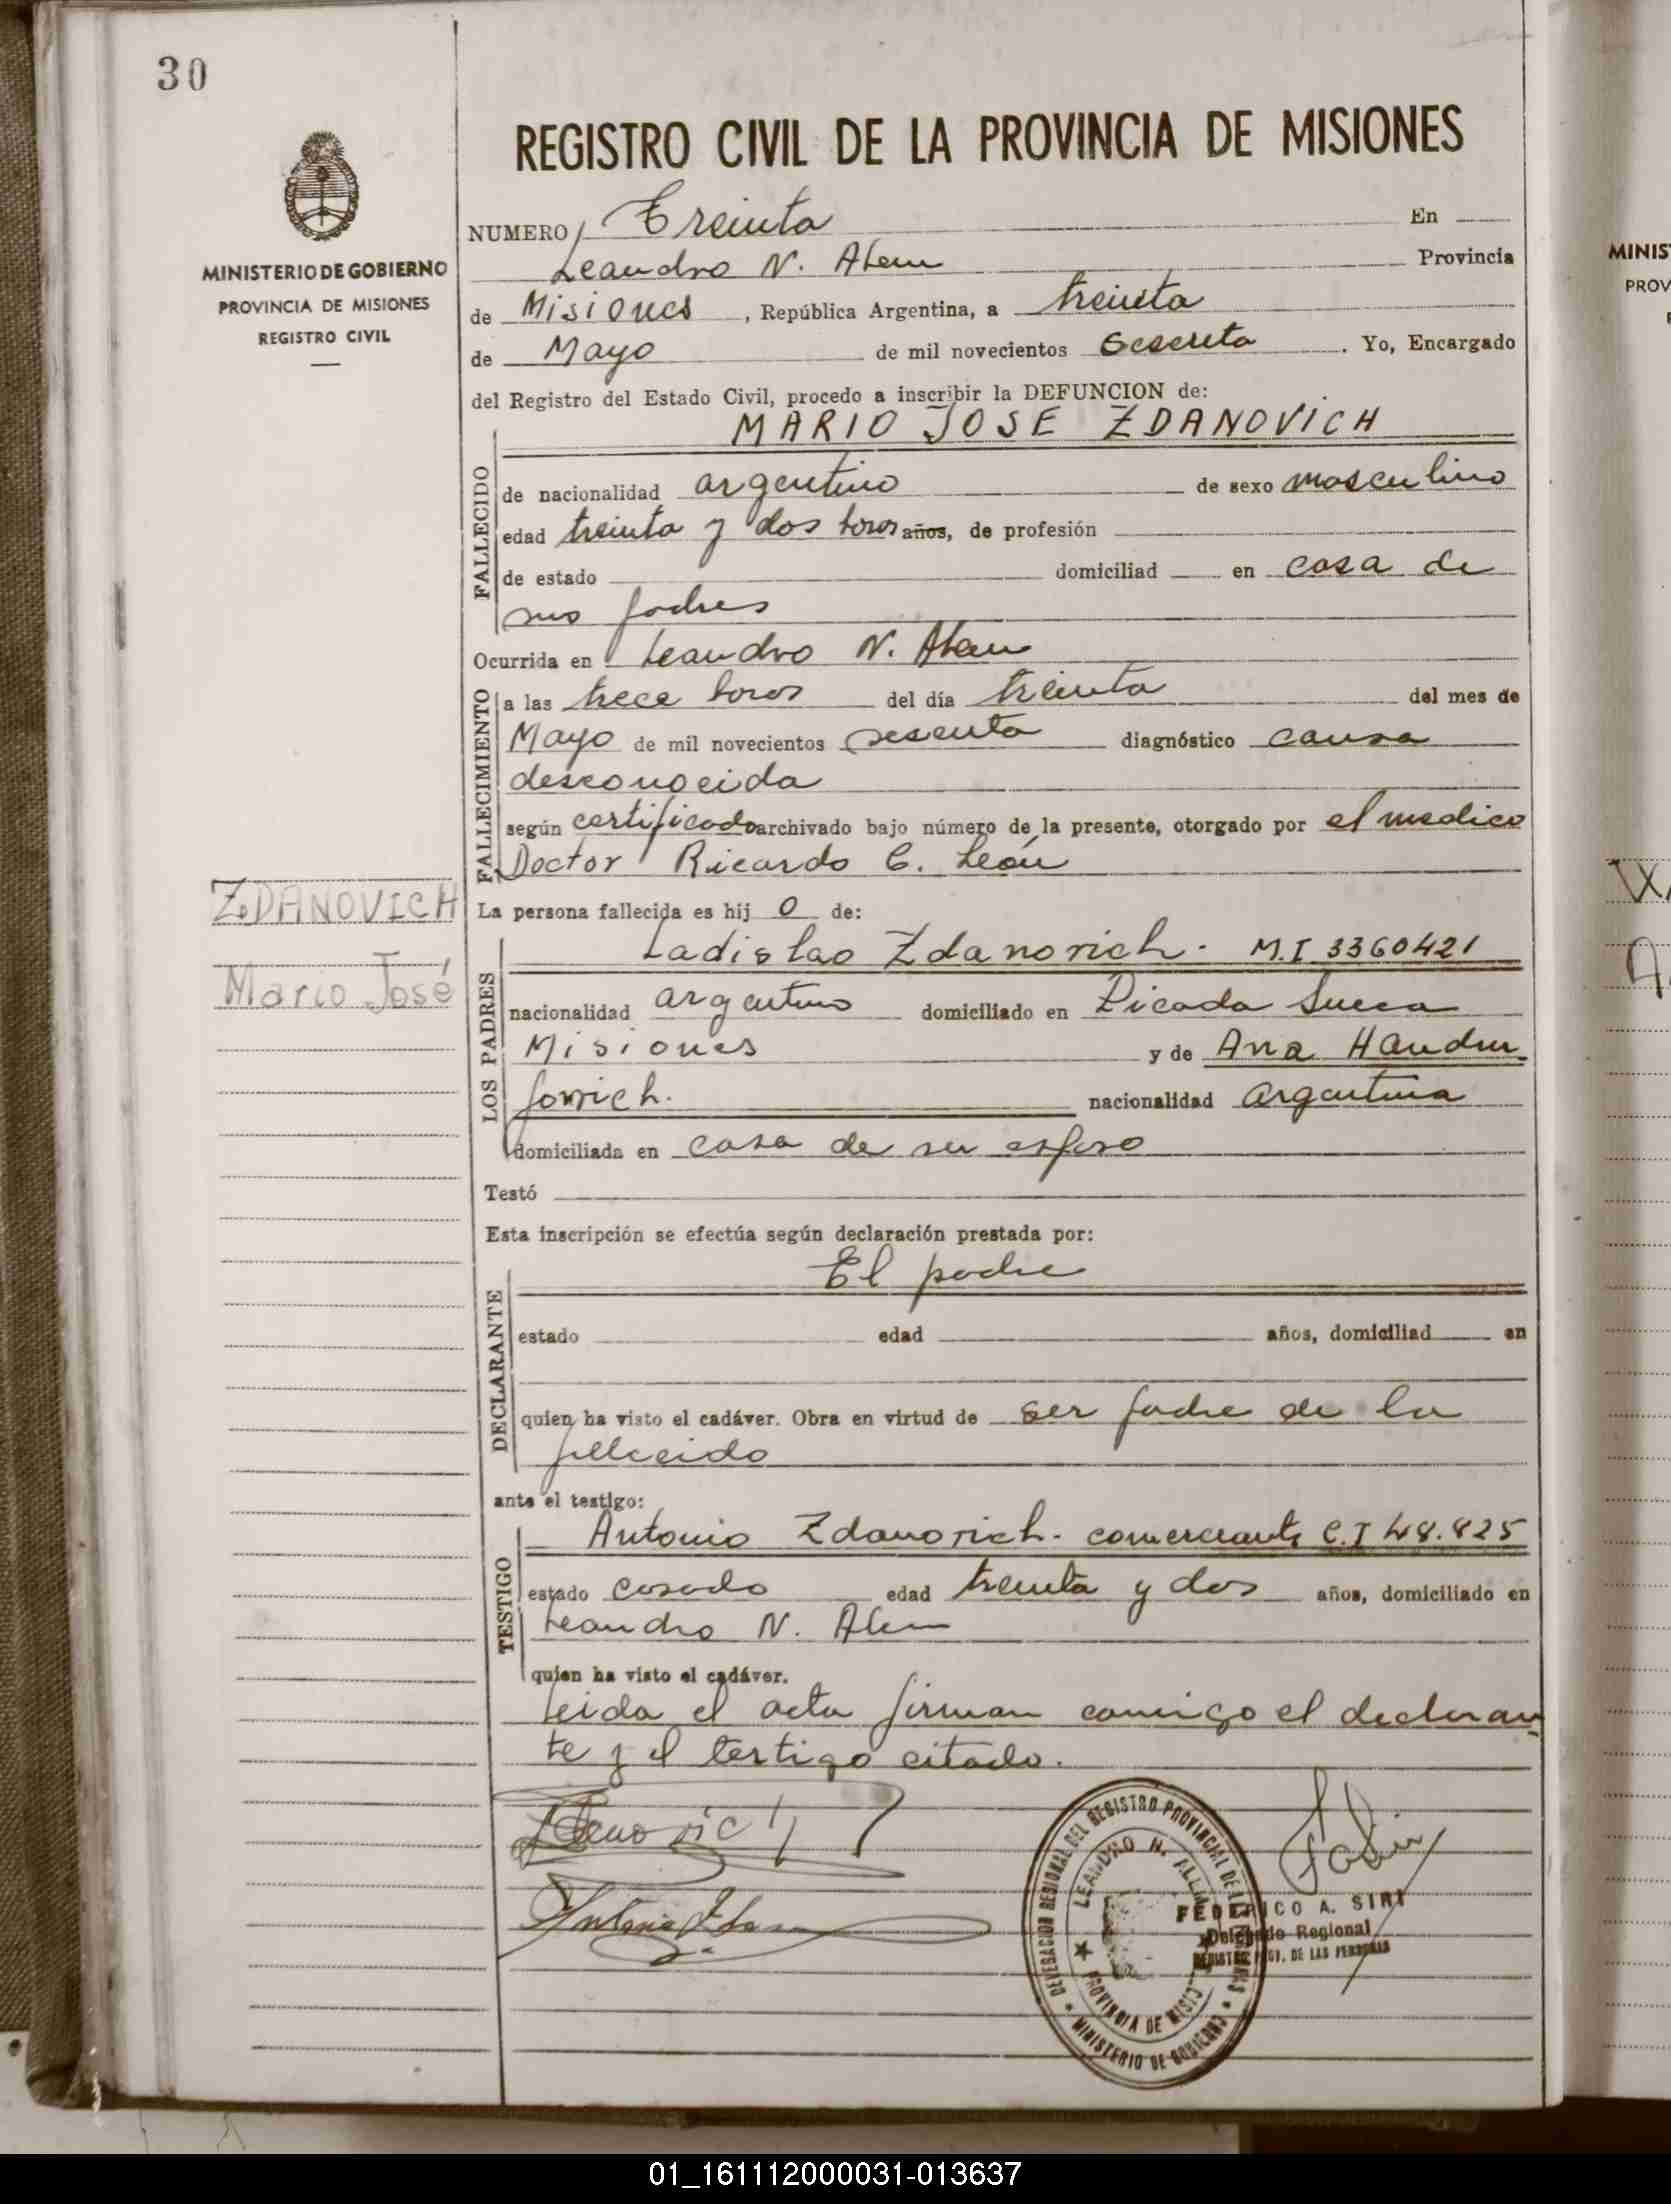 30
REGISTRO CIVIL DE LA PROVINCIA DE MISIONES
MINISTERIO DE GOBIERNO
PROVINCIA DE MISIONES
REGISTRO CIVIL
NUMERO Treinta En
Leandro N. Alem Provincia
de Misiones, República Argentina, a treinta
de Mayo de mil novecientos sesenta. Yo, Encargado
del Registro del Estado Civil, procedo a inscribir la DEFUNCION de:
MARIO JOSE ZDANOVICH
FALLECIDO
de nacionalidad argentino de sexo masculino
edad treinta y dos horas años, de profesión
de estado domiciliad en casa de
sus padres
Ocurrida en Leandro N. Alem
FALLECIMIENTO
a las trece horas del día treinta del mes de
Mayo de mil novecientos sesenta diagnóstico causa
desconocida
según certificado archivado bajo número de la presente, otorgado por el medico
Doctor Ricardo C. León
ZDANOVICH
Mario José
La persona fallecida es hij o de:
LOS PADRES
Ladislao Zdanovich. M.I 3360421
nacionalidad argentino domiciliado en Picada Sueca
Misiones y de Ana
nacionalidad argentina
domiciliada en casa de su esposo
Testó
Esta inscripción se efectúa según declaración prestada por:
DECLARANTE
El padre
estado edad años, domiciliad en
quien ha visto el cadáver. Obra en virtud de ser padre de la
fallecido
ante el testigo:
TESTIGO
Antonio Zdanovich. comerciante C.I 48.825
estado casado edad treinta y dos años, domiciliado en
Leandro N. Alem
quien ha visto el cadáver.
Leida el acta firman conmigo el declaran
te y el testigo citado.
DELEGACION REGIONAL DEL REGISTRO PROVINCIAL DE LAS PERSONAS
LEANDRO N. ALEM
PROVINCIA DE MISIONES
MINISTERIO DE GOBIERNO
FEDERICO A. SIRI
Delegado Regional
REGISTRO PROV. DE LAS PERSONAS
MINIS
PROV
01_161112000031-013637